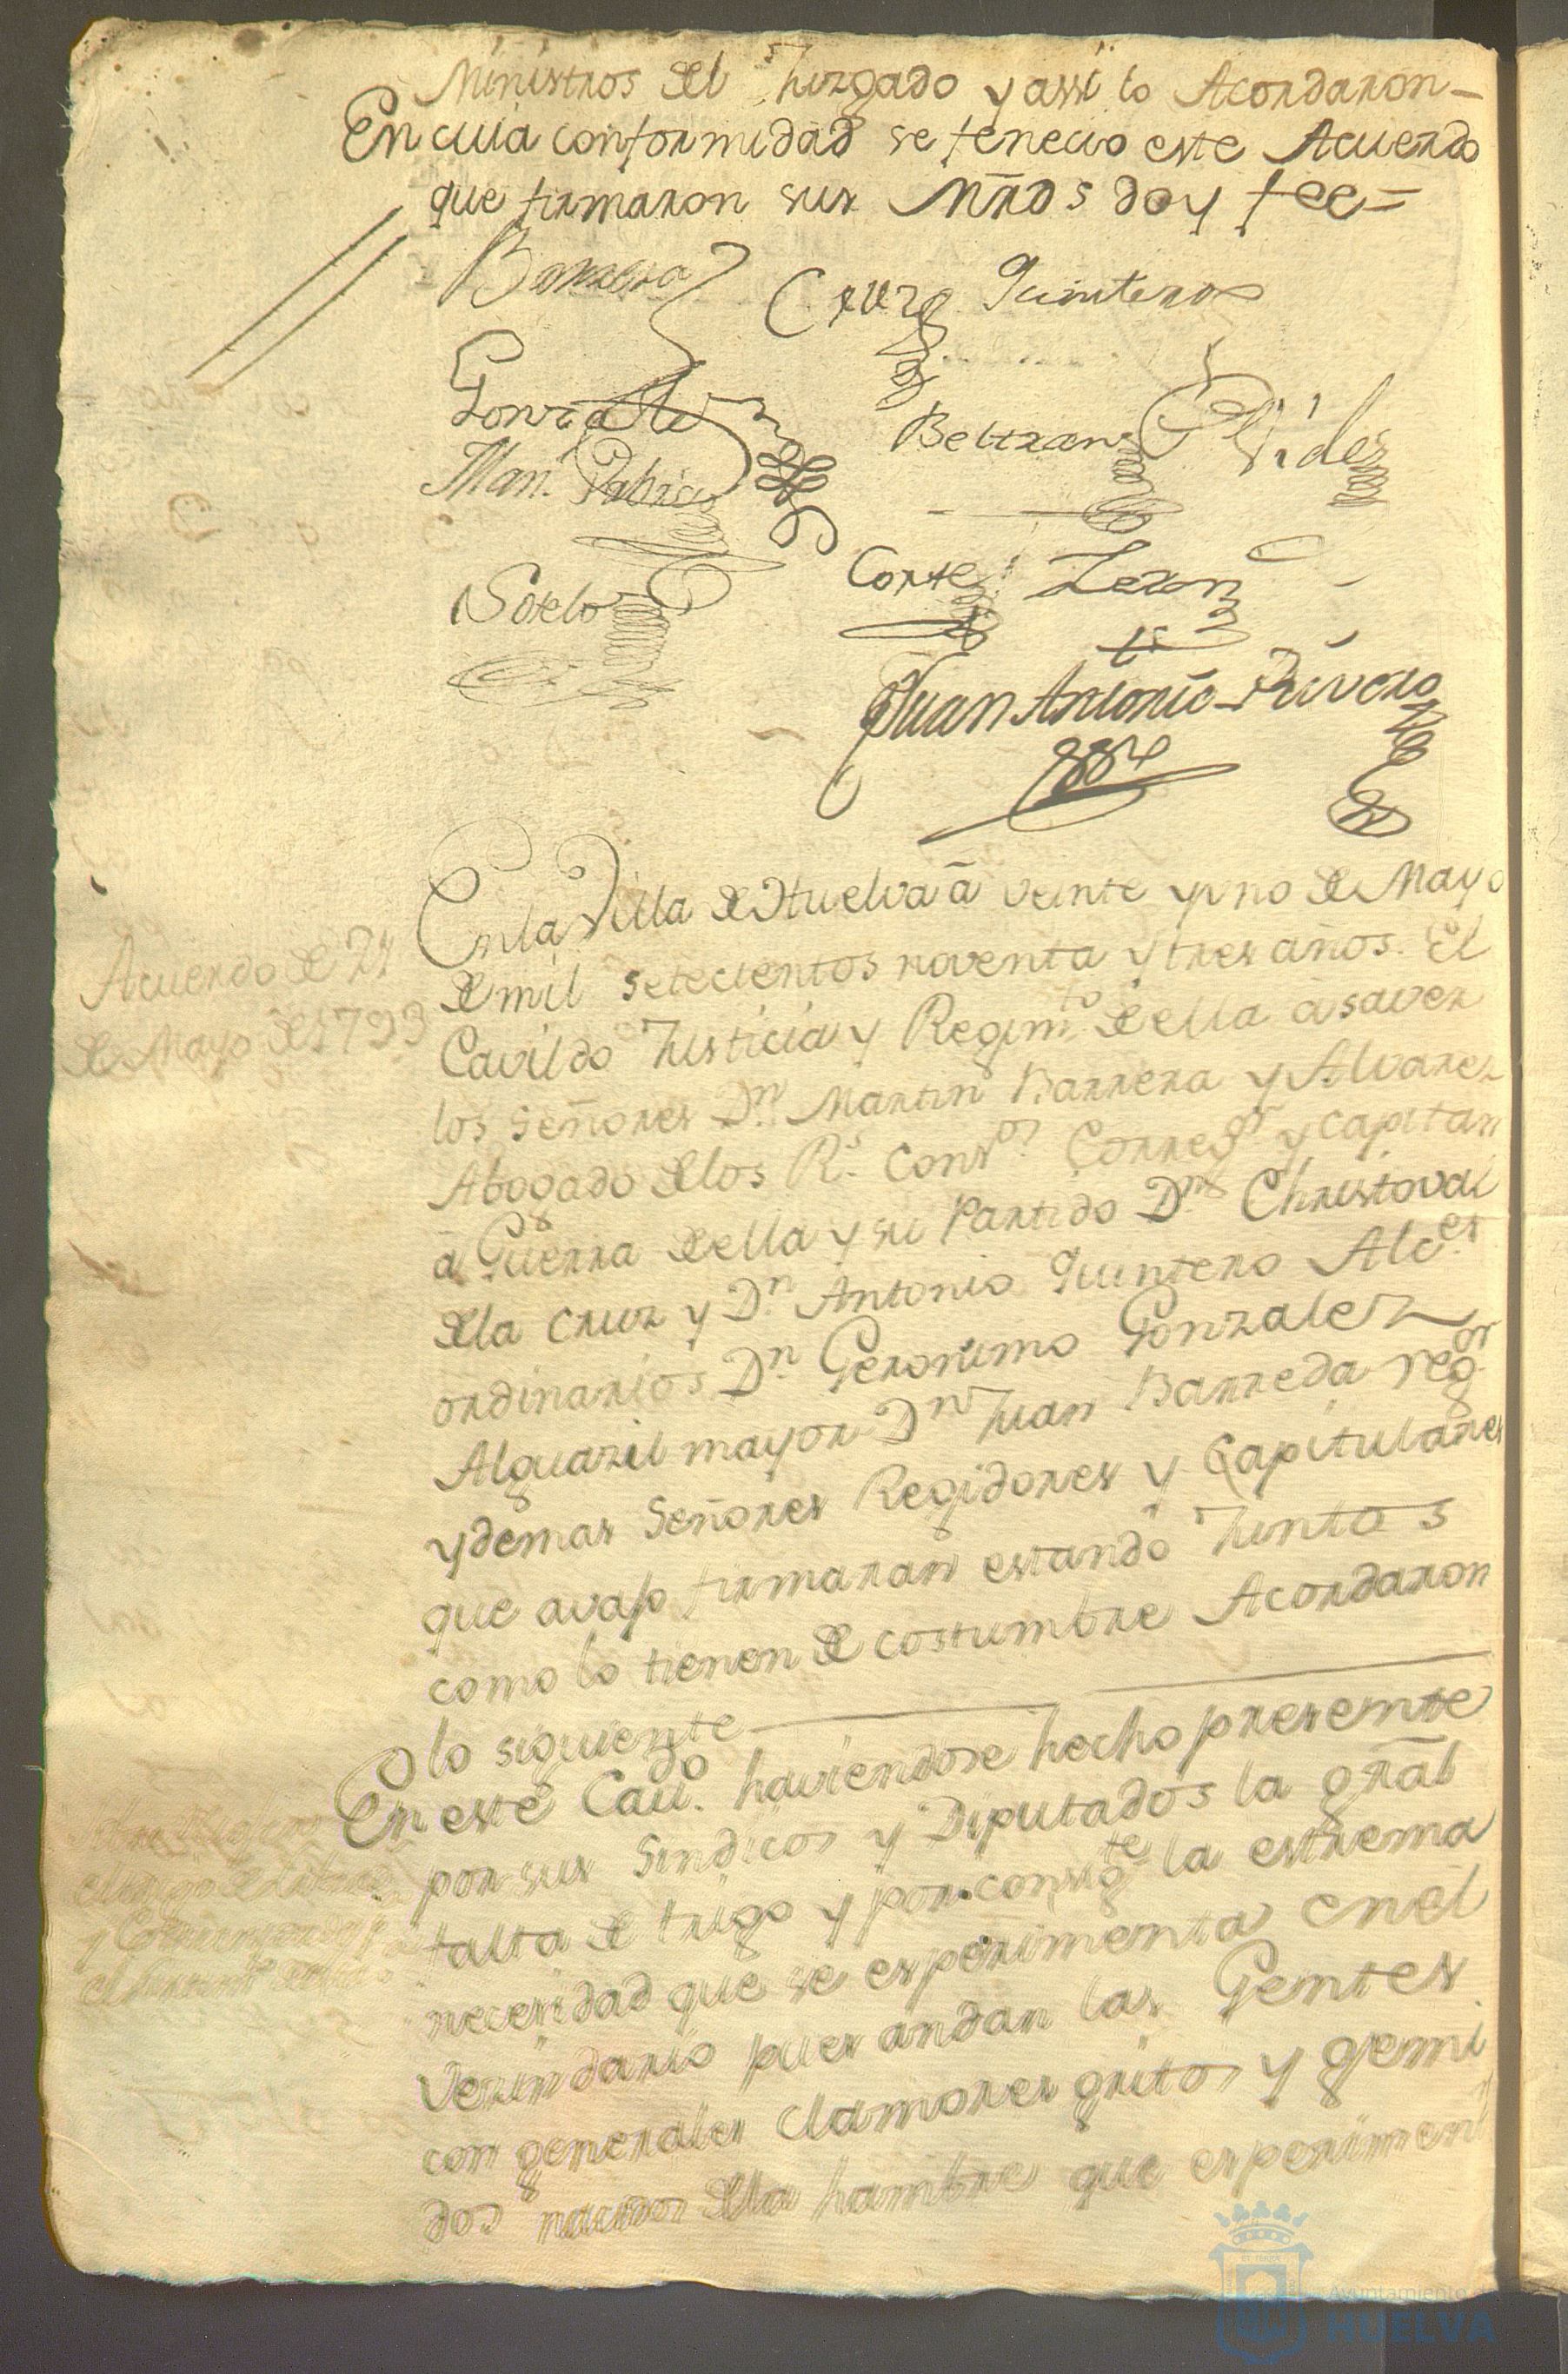 Ministros del Juzgado y assi lo Acordaron-
En cuia conformidad se fenecio este Acuerdo
que firmaron sus Mrds doy fee=
Barrera Cruz Quintero
Gonzalez Beltran
Man.
Sotelo Corte
Juan Antonio Rivero
Acuerdo de 21
de Mayo de 1793
En la Villa de Huelva â veinte y uno de Mayo
de mil setecientos noventa y tres años. El
Cavildo Justicia y Regim.to de ella â saver
los señores D.n Martin Barrera y Alvarez
Abogado de los R.s Cons.os Correg.or y Capitan
â Guerra de ella y su Partido D.n Christoval
de la Cruz y D.n Antonio Quintero Alc.es
ordinarios D.n Geronimo Gonzalez
Alguazil mayor D.n Juan Barreda reg.or
y demas Señores Regidores y Capitulares
que avajo firmaran estando Juntos
como lo tienen de costumbre Acordaron
lo siguiente
En este Cav.do haviendose hecho presente
por sus Sindicos y Diputados la gral
falta de trigo y por consig.te la estrema
necesidad que se esperimenta en el
Vezindario pues andan las Gentes
con generales clamores gritos y gemi
dos nacidos de la hambre que esperimen
Ayuntamiento de
HUELVA